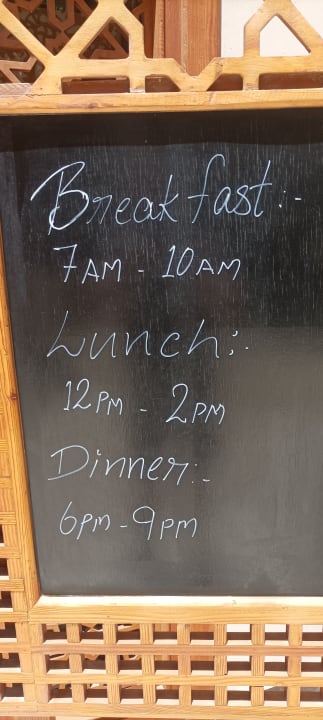 Breakfast:-
7AM - 10AM
Lunch:-
12PM - 2PM
Dinner:-
6PM - 9PM